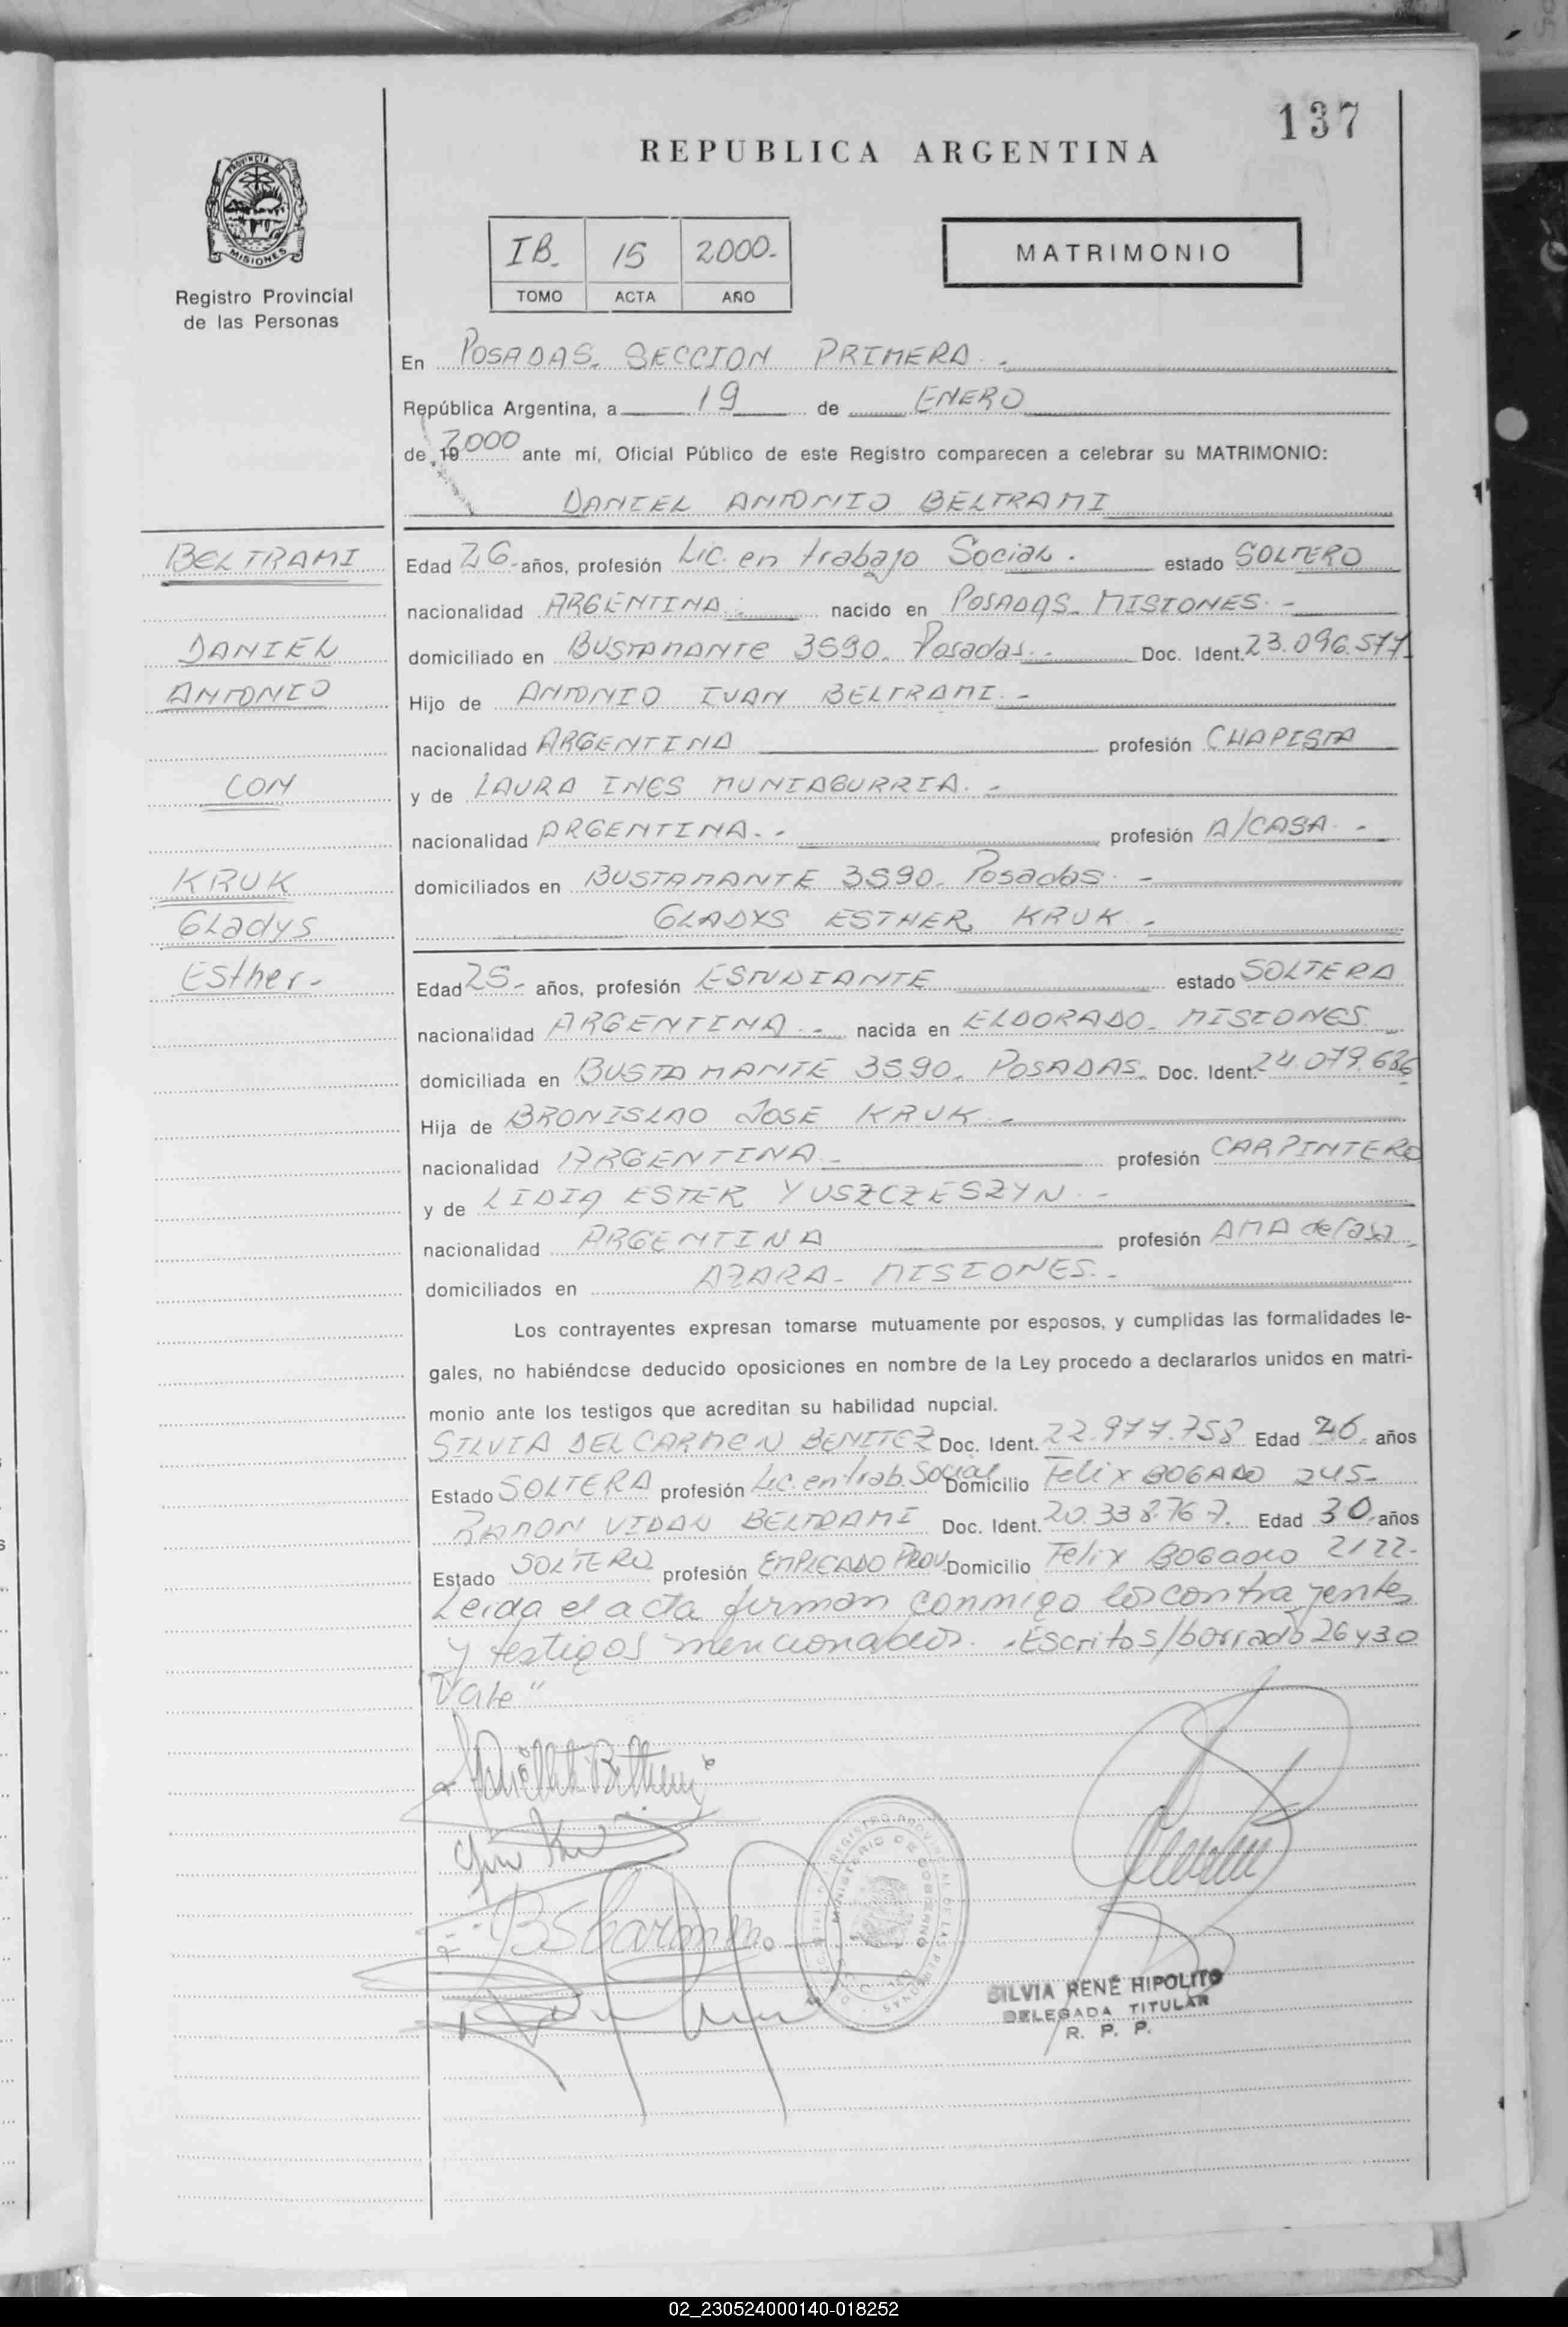 137
REPUBLICA ARGENTINA
PROVINCIA DE
MISIONES
Registro Provincial
de las Personas
IB. 15 2000.-
TOMO ACTA AÑO
MATRIMONIO
En POSADAS. SECCION PRIMERA.-
República Argentina, a 19 de ENERO
de 19 2000 ante mí, Oficial Público de este Registro comparecen a celebrar su MATRIMONIO:
DANIEL ANTONIO BELTRAMI
BELTRAMI
Edad 26.- años, profesión Lic. en trabajo Social. estado SOLTERO
nacionalidad ARGENTINA.- nacido en POSADAS- MISIONES.-
DANIEL
domiciliado en BUSTAMANTE 3590. Posadas.- Doc. Ident. 23.096.577
ANTONIO
Hijo de ANTONIO IVAN BELTRAMI.-
nacionalidad ARGENTINA profesión CHAPISTA
CON
y de LAURA INES MUNIAGURRIA.-
nacionalidad ARGENTINA.- profesión A/CASA.-
KRUK
domiciliados en BUSTAMANTE 3590. Posadas.-
Gladys
GLADYS ESTHER KRUK.-
Esther.-
Edad 25.- años, profesión ESTUDIANTE estado SOLTERA
nacionalidad ARGENTINA.- nacida en ELDORADO- MISIONES.-
domiciliada en BUSTAMANTE 3590. POSADAS. Doc. Ident. 24.079.686
Hija de BRONISLAO JOSE KRUK.-
nacionalidad ARGENTINA.- profesión CARPINTERO
y de LIDIA ESTER YUSZCZESZYN.-
nacionalidad ARGENTINA profesión AMA de Casa.-
domiciliados en AZARA- MISIONES.-
Los contrayentes expresan tomarse mutuamente por esposos, y cumplidas las formalidades le-
gales, no habiéndose deducido oposiciones en nombre de la Ley procedo a declararlos unidos en matri-
monio ante los testigos que acreditan su habilidad nupcial.
SILVIA DEL CARMEN BENITEZ Doc. Ident. 22.977.758 Edad 26. años
Estado SOLTERA profesión Lic. en trab. Social Domicilio Felix BOGADO 245-
RAMON VIDAL BELTRAMI Doc. Ident. 20.338.767. Edad 30. años
Estado SOLTERO profesión EMPLEADO PROV Domicilio Felix BOGADO 2122-
Leida el acta firman conmigo los contrayentes
y testigos mencionados.- Escritos/borrado 26 y 30
Vale"
REGISTRO PROVINCIAL DE LAS PERSONAS
MINISTERIO DE GOBIERNO
SILVIA RENÉ HIPOLITO
DELEGADA TITULAR
R. P. P.
02_230524000140-018252